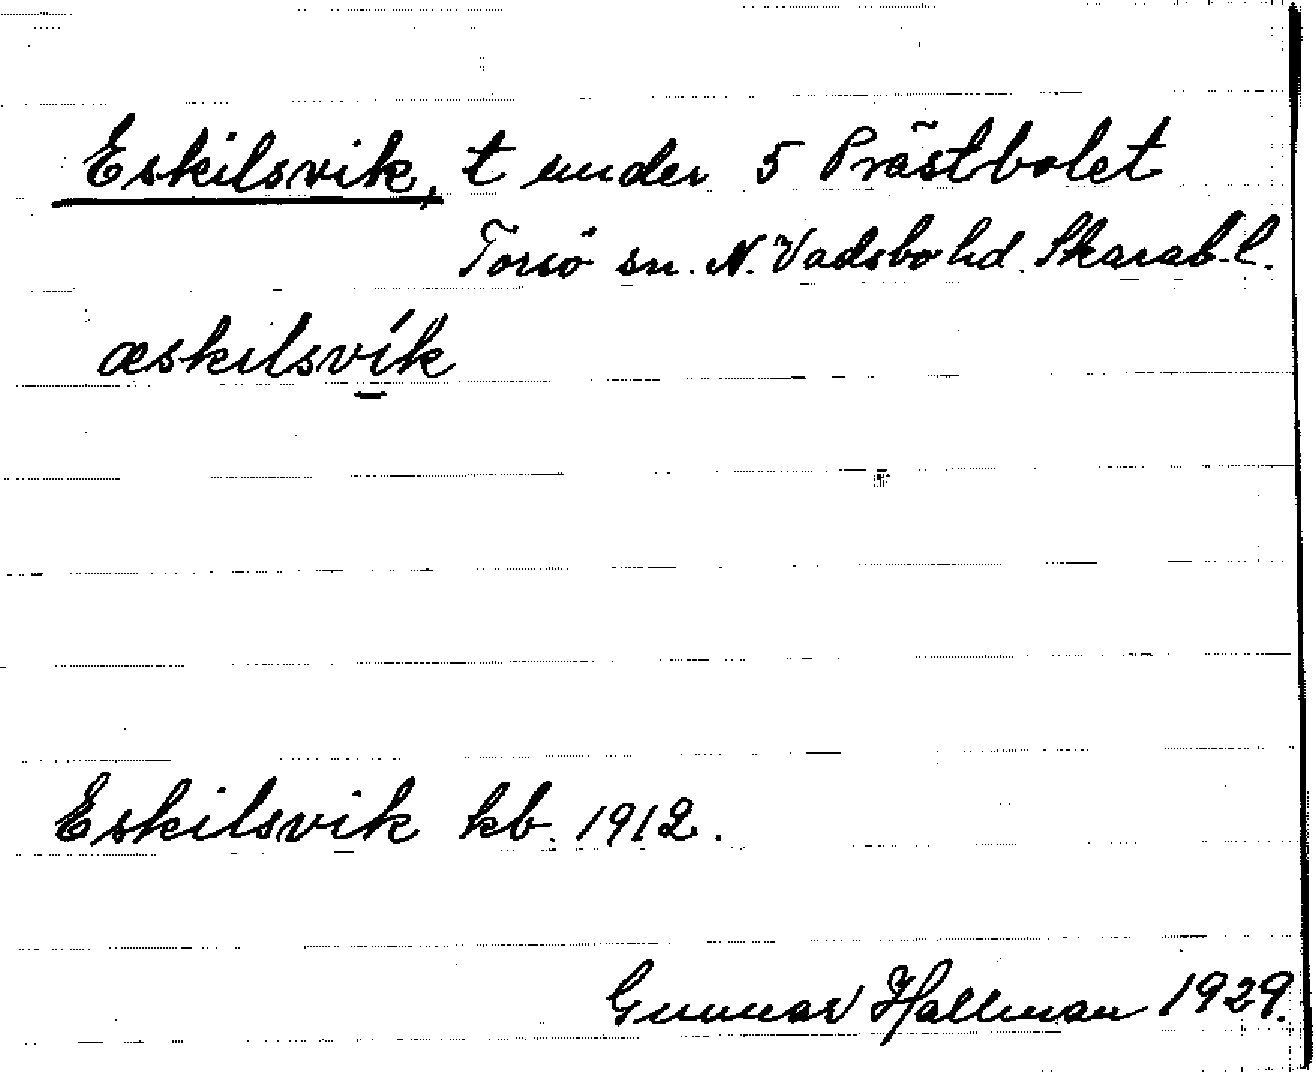 Eskilsvik, t under 5 Prästbolet
Torsö sn. N. Vadsbo hd. Skarab. l.
æskilsvík
Eskilsvik kb. 1912.
Gunnar Hallman 1929.